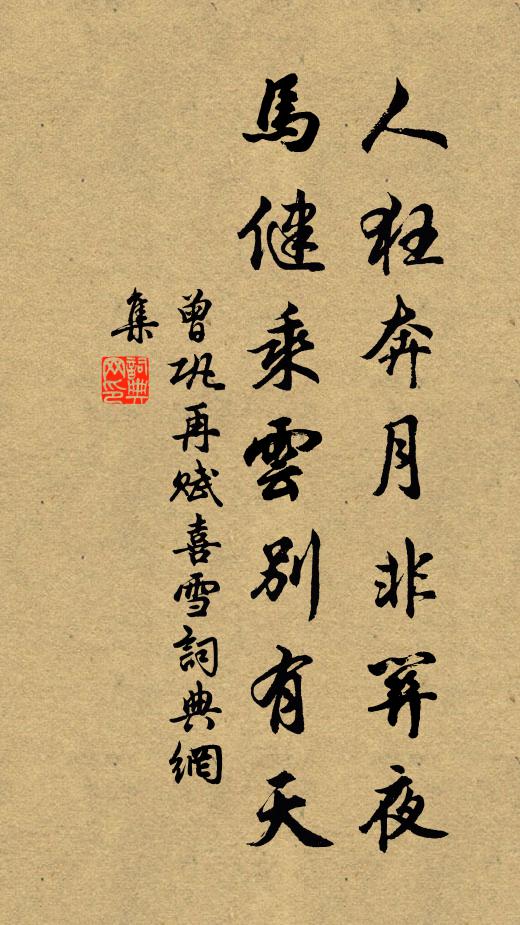 人狂奔月非關夜
馬健乘雲別有天
曾巩再賦喜雪詞典網
集
詞典
网印